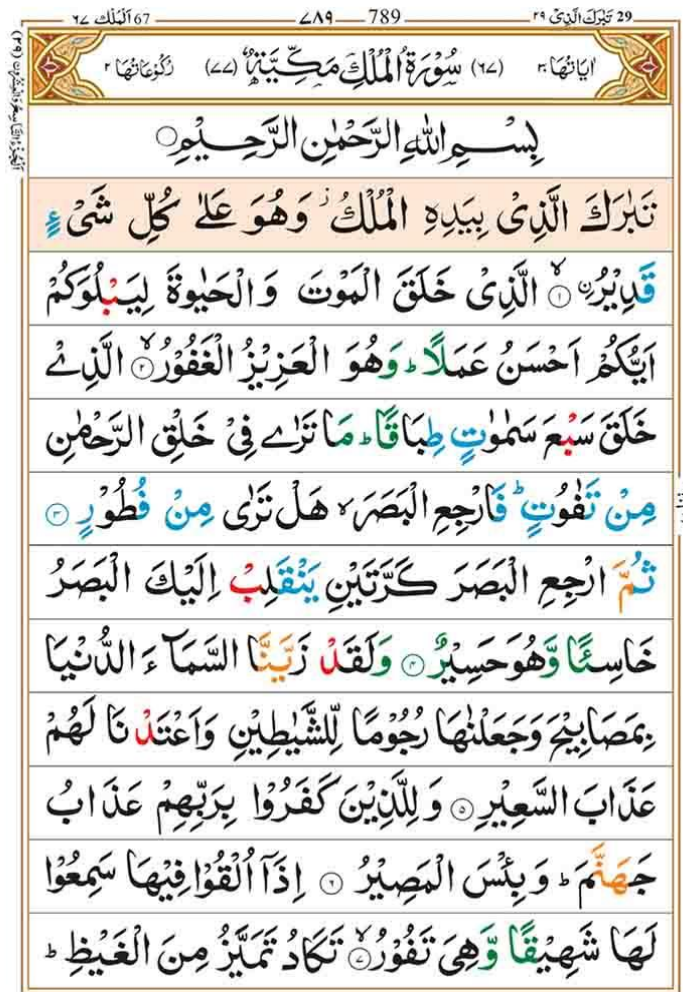 29 تَبٰرَكَ الَّذِىْ ٢٩ 789 ٧٨٩ 67 اَلْمُلْك ٦٧
اٰیَاتُهَا ٣٠ (٦٧) سُوْرَةُ الْمُلْكِ مَكِّیَّةٌ (٧٧) رُكُوْعَاتُهَا ٢
بِسْمِ اللّٰهِ الرَّحْمٰنِ الرَّحِیْمِ ○
تَبٰرَكَ الَّذِىْ بِیَدِهِ الْمُلْكُ ؗ وَهُوَ عَلٰى كُلِّ شَىْءٍ
قَدِیْرُ ۟ۙ ن ١ الَّذِىْ خَلَقَ الْمَوْتَ وَالْحَیٰوةَ لِیَبْلُوَكُمْ
اَیُّكُمْ اَحْسَنُ عَمَلًا ؕ وَهُوَ الْعَزِیْزُ الْغَفُوْرُ ۙ ٢ الَّذِىْ
خَلَقَ سَبْعَ سَمٰوٰتٍ طِبَاقًا ؕ مَا تَرٰى فِىْ خَلْقِ الرَّحْمٰنِ
مِنْ تَفٰوُتٍ ؕ فَارْجِعِ الْبَصَرَ ۙ هَلْ تَرٰى مِنْ فُطُوْرٍ ٣
ثُمَّ ارْجِعِ الْبَصَرَ كَرَّتَیْنِ یَنْقَلِبْ اِلَیْكَ الْبَصَرُ
خَاسِئًا وَّهُوَ حَسِیْرٌ ٤ وَلَقَدْ زَیَّنَّا السَّمَآءَ الدُّنْیَا
بِمَصَابِیْحَ وَجَعَلْنٰهَا رُجُوْمًا لِّلشَّیٰطِیْنِ وَاَعْتَدْنَا لَهُمْ
عَذَابَ السَّعِیْرِ ٥ وَلِلَّذِیْنَ كَفَرُوْا بِرَبِّهِمْ عَذَابُ
جَهَنَّمَ ؕ وَبِئْسَ الْمَصِیْرُ ٦ اِذَاۤ اُلْقُوْا فِیْهَا سَمِعُوْا
لَهَا شَهِیْقًا وَّهِىَ تَفُوْرُ ۙ ٧ تَكَادُ تَمَیَّزُ مِنَ الْغَیْظِ ؕ